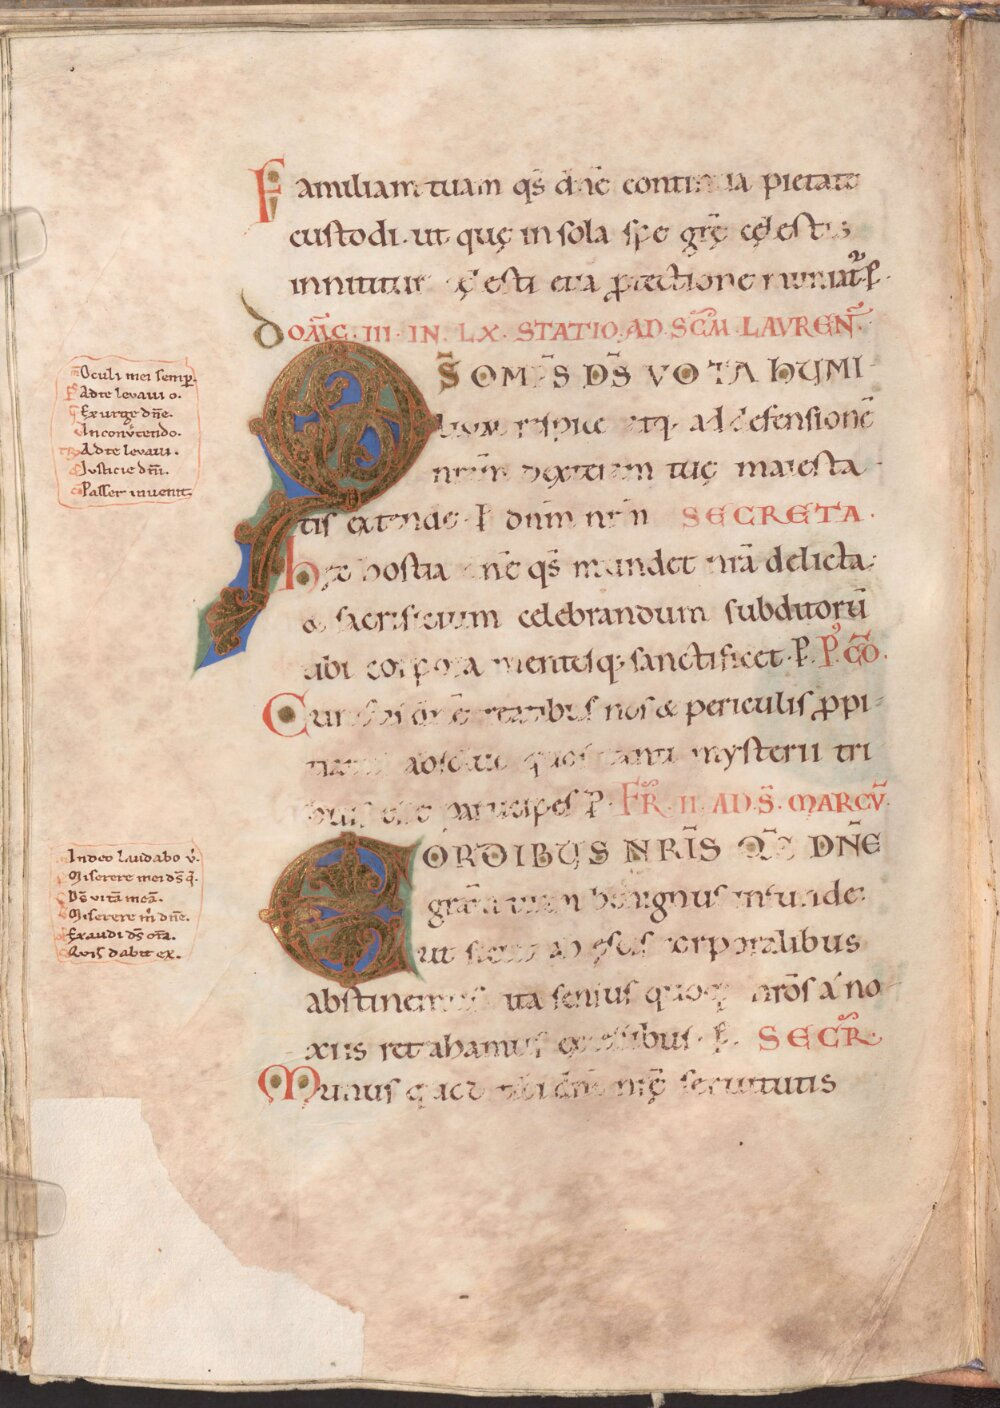 Familiam tuam qs dne continua pietate
custodi. ut quę in sola spe grę cęlestis
innititur cęlesti etiā ptectione muniat. P.
DOMC. III. IN. LX. STATIO. AD. SCM. LAVREN.
QS OMPS DS VOTA HUMI
lium respice atq. ad defensionē
nrām dexteram tuę maiesta
tis extende. P dnm nrm SECRETA.
Hęc hostia dne qs mundet nrā delicta.
& sacrificium celebrandum subditorū
tibi corpora mentesq. sanctificet. P. P CO.
Cunctis dne reatibus nos & periculis ppi
tiatus absolue quos tanti mysterii tri
buis esse participes P. FR. II. AD. S. MARCV.
CORDIBUS NRIS QS DNE
gratiā tuam benignus infunde.
ut sicut ab escis corporalibus
abstinemus ita sensus quoq. nrōs a no
xiis retrahamus excessibus. P. SECR
Munus quod tibi dne nrę seruitutis
Oculi mei semp.
Ad te levavi o.
Exurge dne.
In convtendo.
Ad te levavi.
Justicie dni.
Passer invenit.
In deo laudabo v.
Miserere mei ds q.
Ds vitā meā.
Miserere m dne.
Exaudi ds ora.
Quis dabit ex.